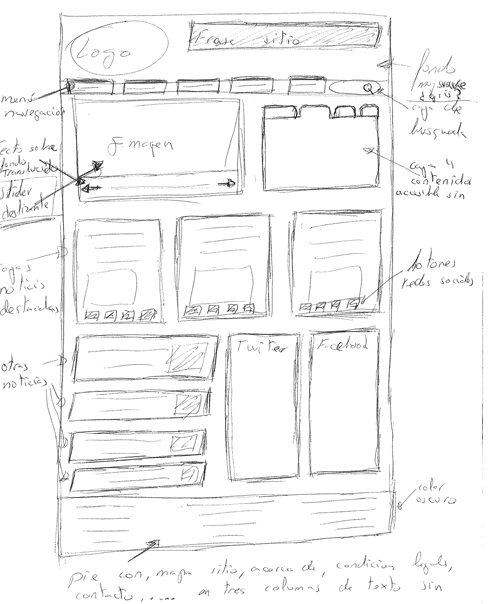 Logo
Frase sitio
fondo
muy suave
menú
navegación
caja de
busqueda
Imagen
texto sobre
fondo
translucido
slider
deslizante
caja 4
contenidos
accesible sin
cajas
noticis
destacadas
botones
redes sociales
otras
noticias
Twitter
Facebood
color
oscuro
pie con, mapa sitio, acerca de, condicion legale,
contacto, .... en tres columas de texto sin